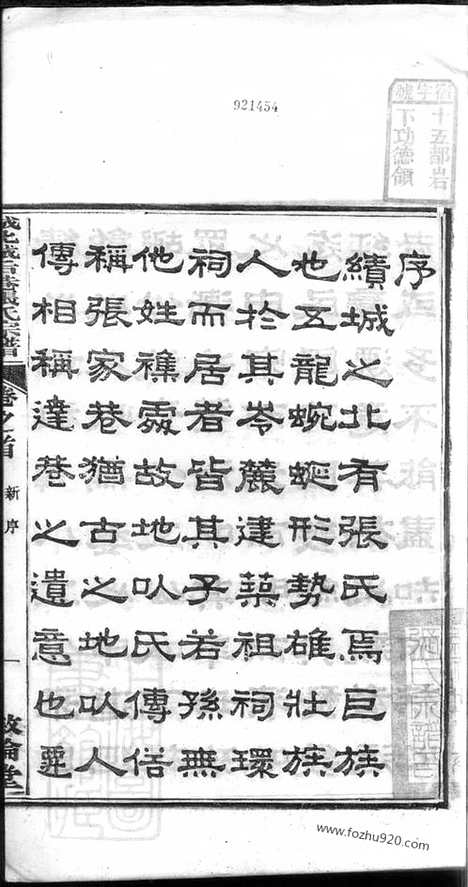 921454
宿字號
十五都岩
下功德領
序
績城之北有張氏焉巨族
也五龍蜿蜒形勢雄壯族
人於其岑麓建築祖祠環
祠而居者皆其子若孫無
他姓襍處故地以氏傳俗
稱張家巷猶古之地以人
傳相稱達巷之遺意也
張氏宗譜
卷之首
新序
一
倫堂
www.fozhu920.com